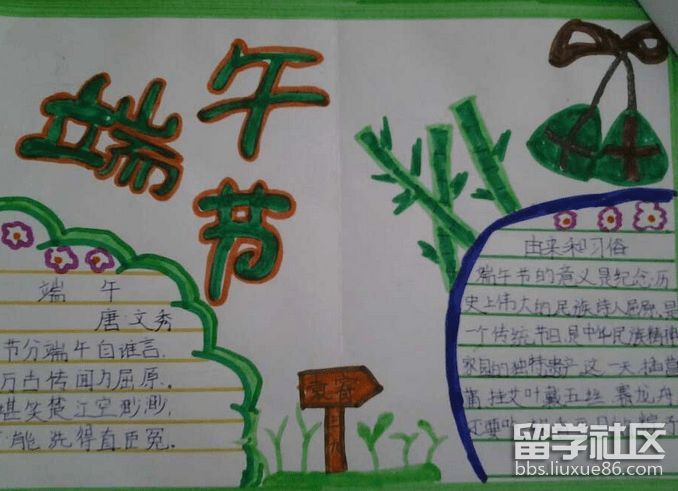 端午节
端 午
唐 文秀
节分端午自谁言,
万古传闻为屈原。
堪笑楚江空渺渺,
能洗得直臣冤。
由来和习俗
端午节的意义是纪念历
史上伟大的民族诗人屈原,是
一个传统节日,是中华民族精神
家园的独特遗产,这一天,插菖
蒲,挂艾叶,戴五丝,赛龙舟,
还要
留学社区
bbs.liuxue86.com